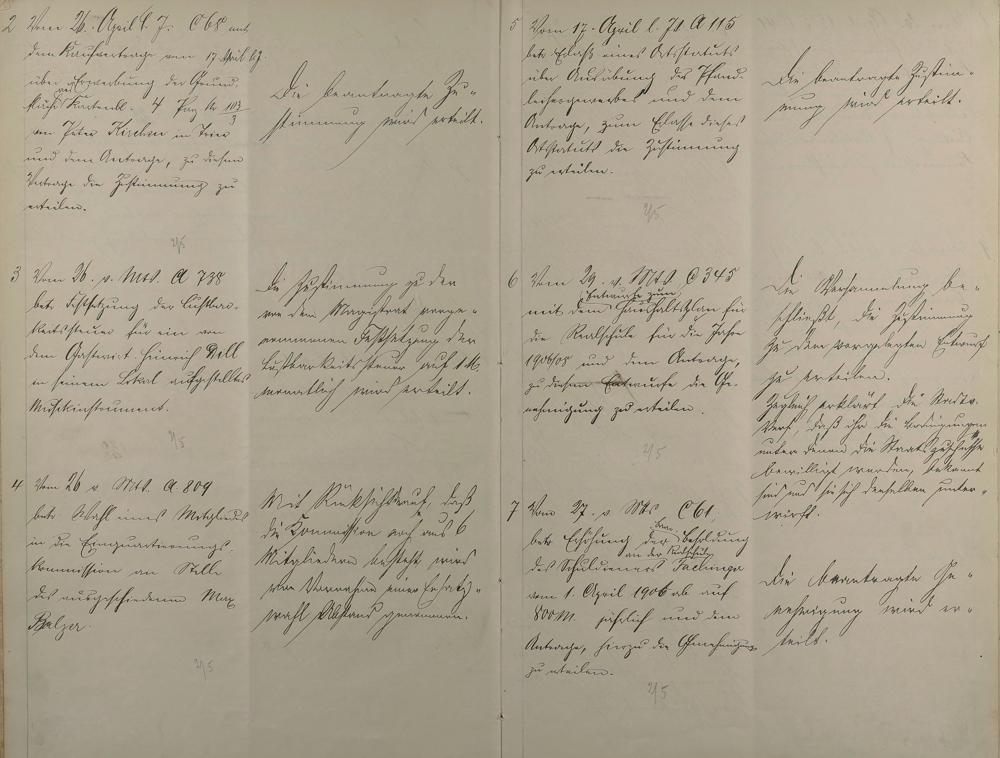 2 Vom 26. April l. J. C 68 mit
dem Kaufvertrage vom 17. April l. J.
über Erwerbung des Grund-
stücks Kartenbl. 4 Parz. Nr. 103/3
von Peter Kirchen in Trier
und dem Antrage, zu diesem
Vertrage die Zustimmung zu
erteilen.
2/5
Die beantragte Zu-
stimmung wird erteilt.
3 Vom 26. v. Mts. A 738
betr. Festsetzung der Lustbar-
keitssteuer für ein von
dem Gastwirt Heinrich Dell
in seinem Lokal aufgestelltes
Musikinstrument.
2/5
Die Zustimmung zu der
von dem Magistrat vorge-
nommenen Festsetzung der
Lustbarkeitssteuer auf 1 M.
monatlich wird erteilt.
4 Vom 26 v. Mts. A. 809
betr. Wahl eines Mitgliedes
in die Einquartierungs-
Kommission an Stelle
des ausgeschiedenen Max
Balzer.
2/5
Mit Rücksicht darauf, daß
die Kommission noch aus 6
Mitgliedern besteht wird
von Vornahme einer Ersatz-
wahl Abstand genommen.
5 Vom 17. April l. Js. A 115
betr. Erlaß eines Ortsstatuts
über Ausübung des Pfand-
leihergewerbes und dem
Antrage, zum Erlasse dieses
Ortsstatuts die Zustimmung
zu erteilen.
2/5
Die beantragte Zustim-
mung wird erteilt.
6 Vom 29. v. Mts. C 345
mit dem Entwurfe zum Haushaltsplan für
die Realschule für die Jahre
1906/08 und dem Antrage,
zu diesem Entwurfe die Ge-
nehmigung zu erteilen.
2/5
Die Versammlung be-
schließt, die Zustimmung
zu dem vorgelegten Entwurf
zu erteilen.
Zugleich erklärt die Stadtv.
Vers., daß ihr die Bedingungen
unter denen die Staatszuschüsse
bewilligt werden, bekannt
sind und sie sich denselben unter-
wirft.
7 Vom 27. v. Mts. C 61,
betr. Erhöhung der Besoldung
des Schuldieners an der Realschule Fachinger
vom 1. April 1906 ab auf
800 M. jährlich und dem
Antrage, hierzu die Genehmigung
zu erteilen.
2/5
Die beantragte Ge-
nehmigung wird er-
teilt.